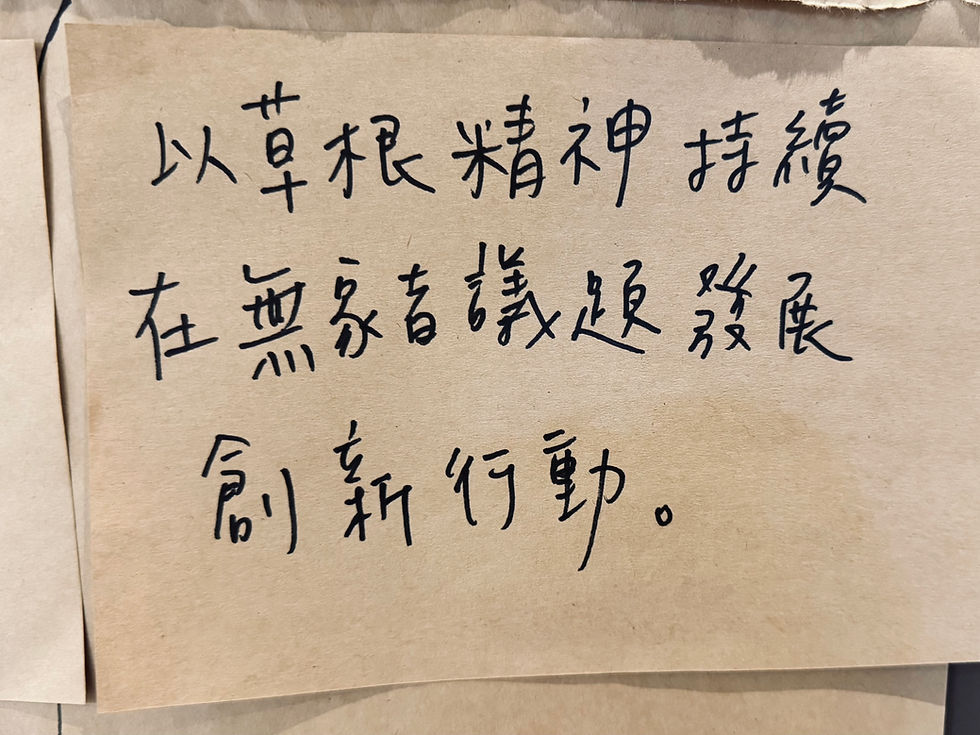 以草根精神持續
在無家者議題發展
創新行動。